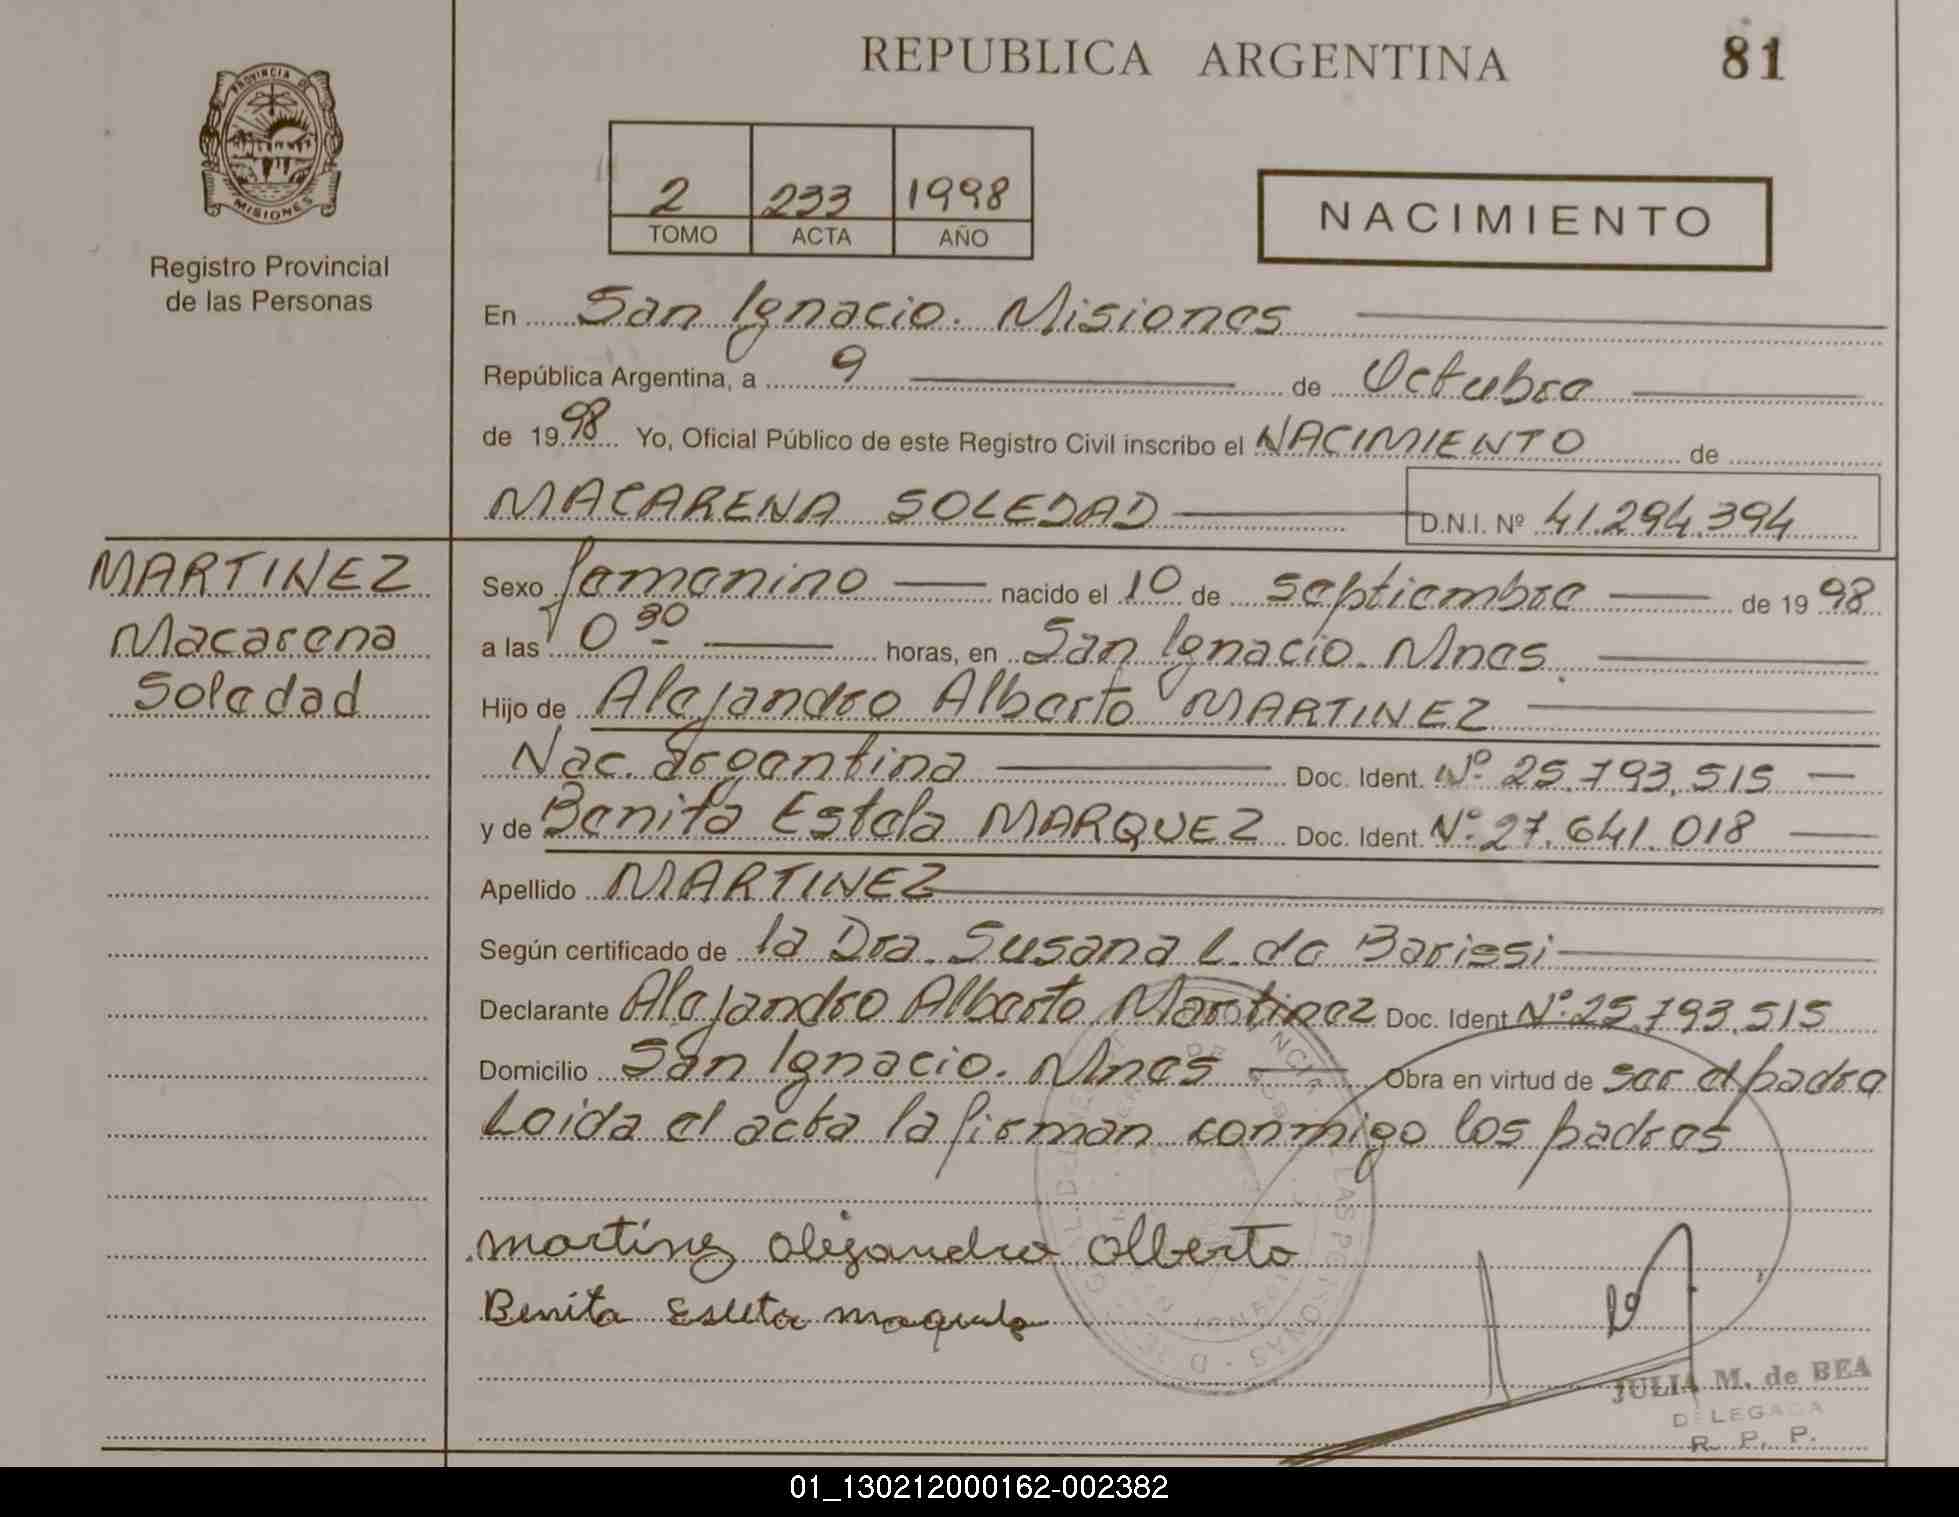 REPUBLICA ARGENTINA
81
PROVINCIA DE
MISIONES
Registro Provincial
de las Personas
2 233 1998
TOMO ACTA AÑO
NACIMIENTO
En San Ignacio. Misiones
República Argentina, a 9 de Octubre
de 1998 Yo, Oficial Público de este Registro Civil inscribo el NACIMIENTO de
MACARENA SOLEDAD D.N.I. Nº 41.294.394
MARTINEZ
Macarena
Soledad
Sexo femenino nacido el 10 de septiembre de 1998
a las 0 30 horas, en San Ignacio. Mnes.
Hijo de Alejandro Alberto MARTINEZ
Nac. argentina Doc. Ident. Nº 25.793.515
y de Benita Estela MARQUEZ Doc. Ident. Nº 27.641.018
Apellido MARTINEZ
Según certificado de la Dra. Susana L. de Barissi
Declarante Alejandro Alberto Martinez Doc. Ident Nº 25.793.515
Domicilio San Ignacio. Mnes Obra en virtud de ser el padre
Leida el acta la firman conmigo los padres
martines alejandro alberto
Benita
JULIA M. de BEA
DELEGADA
R. P. P.
01_130212000162-002382